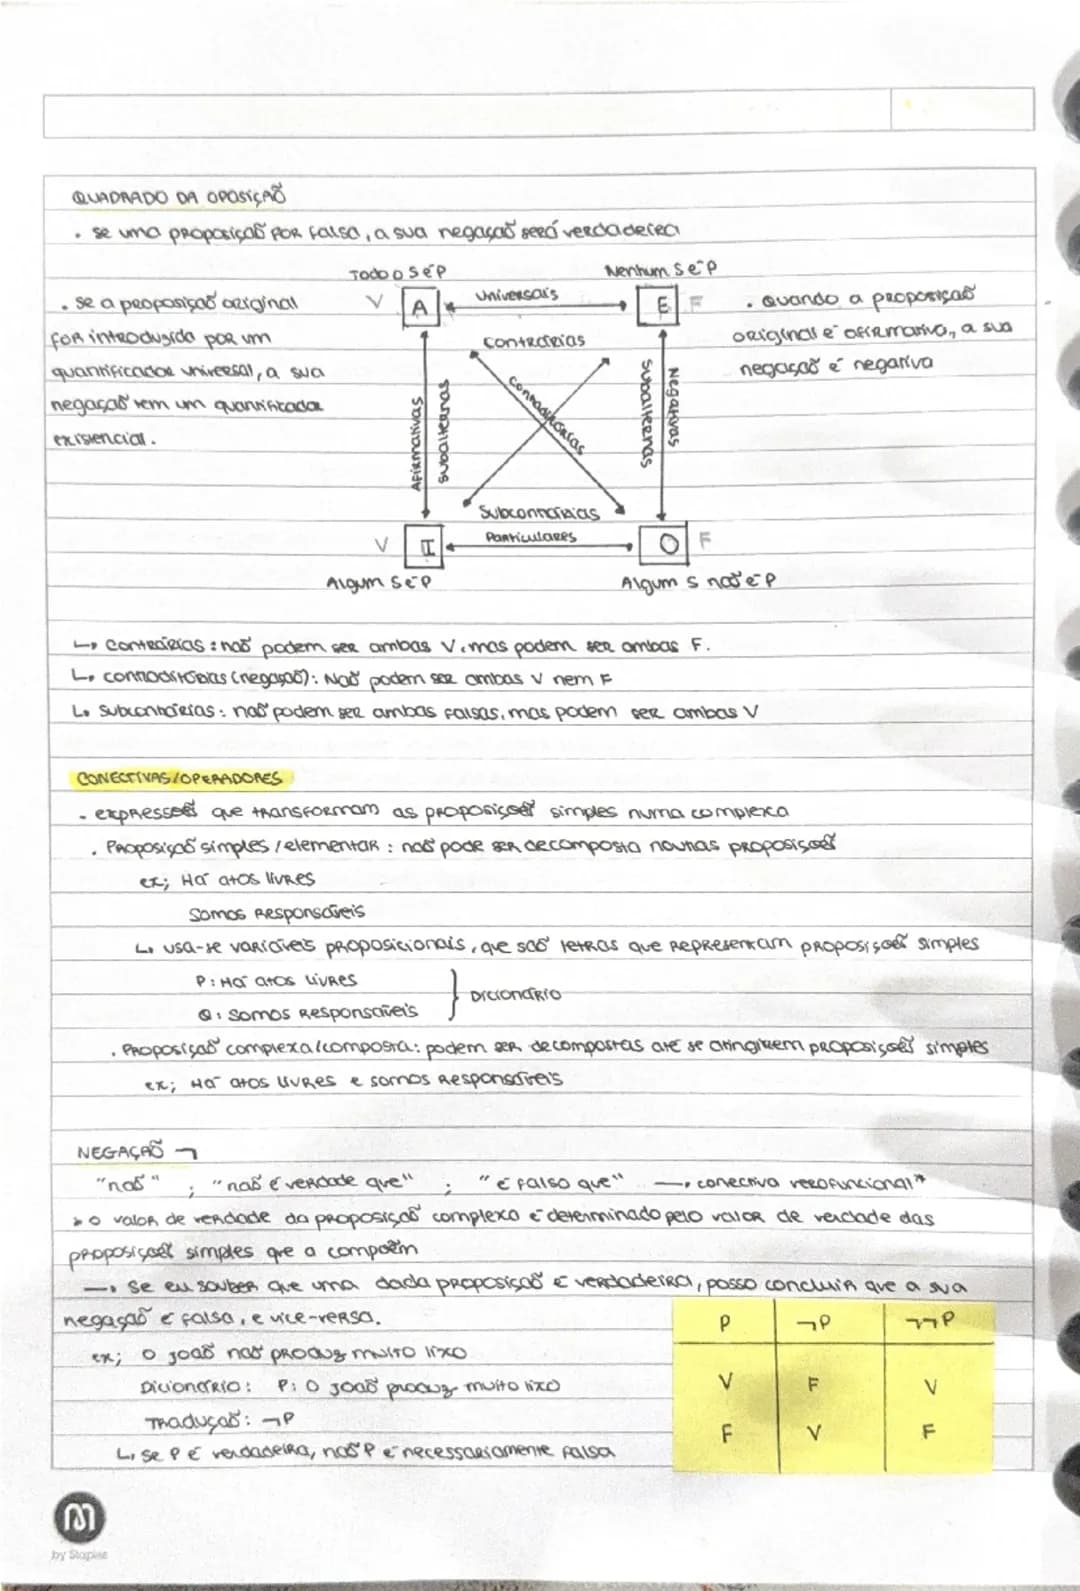 QUADRADO DA OPOSIÇÃO
. se uma proposição for falsa, a sua negação será verdadeira
Todo o S é P
Nenhum S é P
. se a proposição original
for introduzida por um
quantificador universal, a sua
negação tem um quantificador
existencial.
V A
Universais
E F
Contrárias
. Quando a proposição
original é afirmativa, a sua
negação é negativa
Afirmativas
Subalternas
Contraditórias
Subalternas
Negativas
Subcontrárias
V I
Particulares
O F
Algum S é P
Algum S não é P
↳ Contrárias: não podem ser ambas V, mas podem ser ambas F.
↳ contraditórias (negação): Não podem ser ambas V nem F
↳ Subcontrárias: não podem ser ambas falsas, mas podem ser ambas V
CONECTIVAS/OPERADORES
. expressões que transformam as proposições simples numa complexa
. Proposição simples/elementar: não pode ser decomposta noutras proposições
ex; Há atos livres
Somos Responsáveis
↳ usa-se variáveis proposicionais, que são letras que representam proposições simples
P: Há atos livres
Q: Somos Responsáveis
} Dicionário
. Proposição complexa/composta: podem ser decompostas até se atingirem proposições simples
ex; Há atos livres e somos Responsáveis
NEGAÇÃO ¬
"não" ; "não é verdade que" ; "é falso que" → conectiva verofuncional*
* o valor de verdade da proposição complexa é determinado pelo valor de verdade das
proposições simples que a compõem
→ Se eu souber que uma dada proposição é verdadeira, posso concluir que a sua
negação é falsa, e vice-versa.
ex; O João não produz muito lixo
Dicionário: P: O João produz muito lixo
Tradução: ¬P
↳ se P é verdadeira, não P é necessariamente falsa
P ¬P ¬¬P
V F V
F V F
M
by Staples